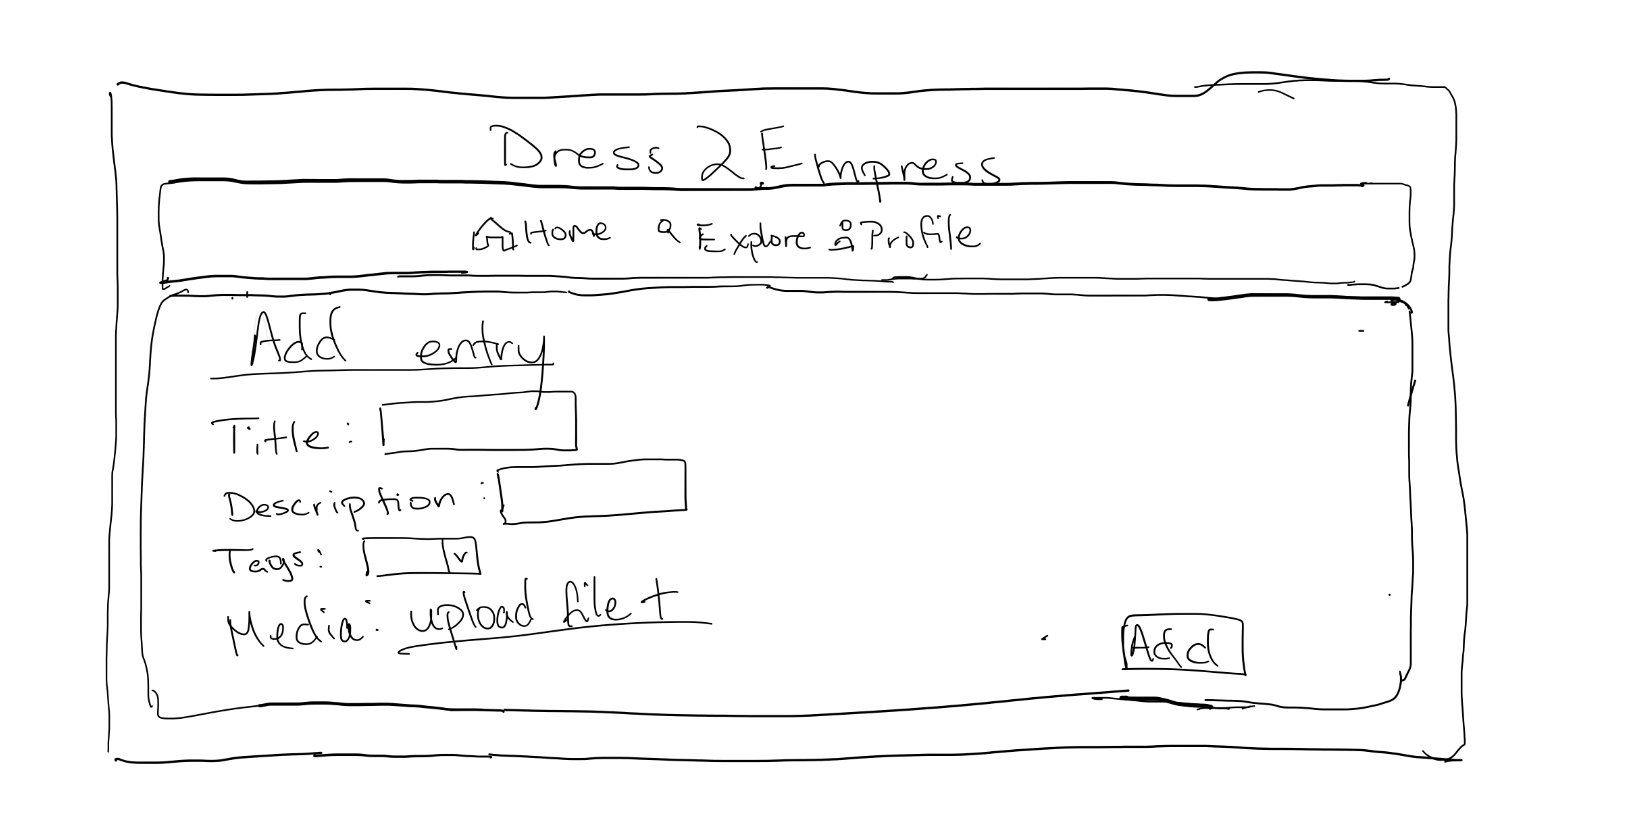 Dress 2 Empress
Home Explore Profile
Add entry
Title:
Description:
Tags: v
Media: upload file +
Add